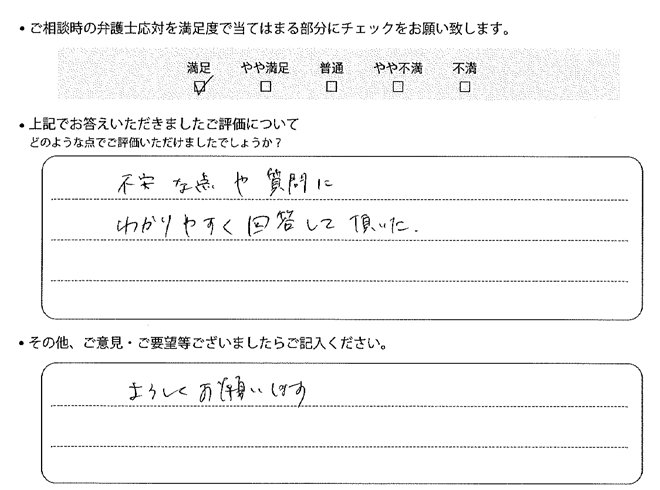 ・ご相談時の弁護士応対を満足度で当てはまる部分にチェックをお願い致します。
満足 やや満足 普通 やや不満 不満
☑ □ □ □ □
・上記でお答えいただきましたご評価について
どのような点でご評価いただけましたでしょうか？
不安な点や質問に
わかりやすく回答して頂いた.
・その他、ご意見・ご要望等ございましたらご記入ください。
よろしくお願いします